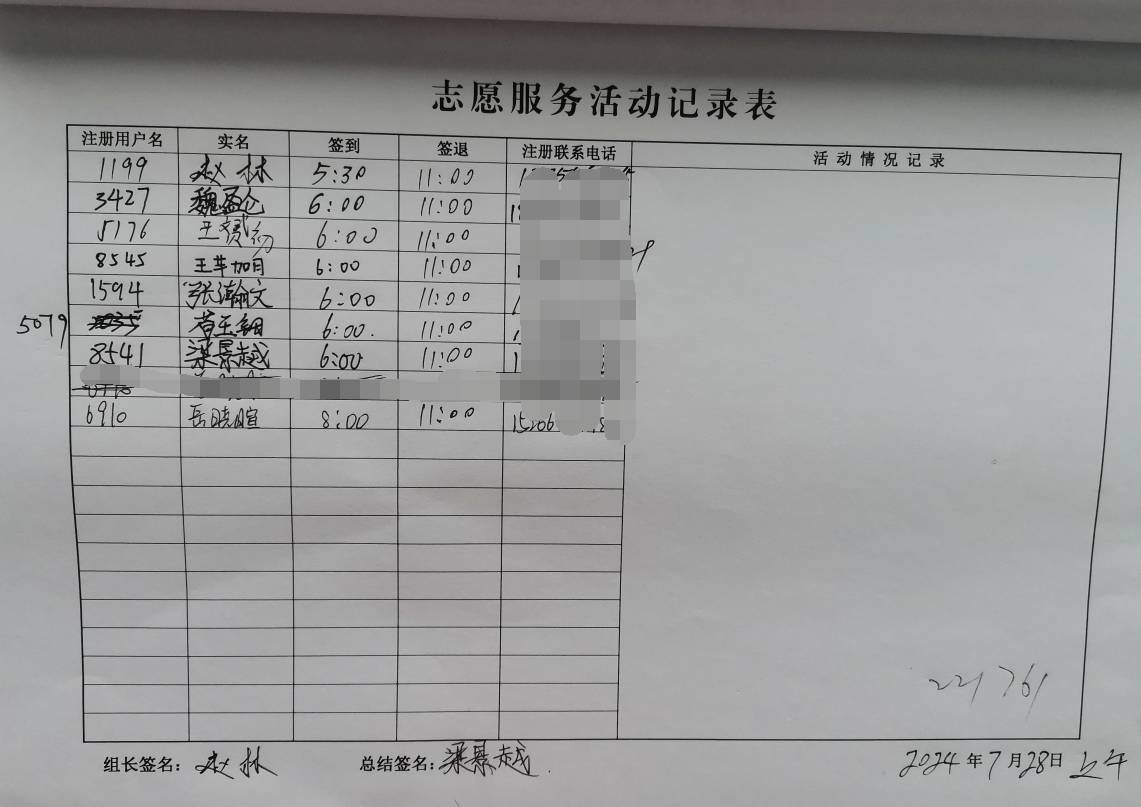 志愿服务活动记录表
注册用户名 实名 签到 签退 注册联系电话 活动情况记录
1199 赵林 5:30 11:00
3427 魏盈仑 6:00 11:00
5176 王赟 6:00 11:00
8545 王芊 6:00 11:00
1594 张瀚文 6:00 11:00
5079 6:00. 11:00
8541 梁景越 6:00 11:00
6910 岳晓暄 8:00 11:00 15206
221761
组长签名: 赵林 总结签名: 梁景越. 2024年7月28日上午